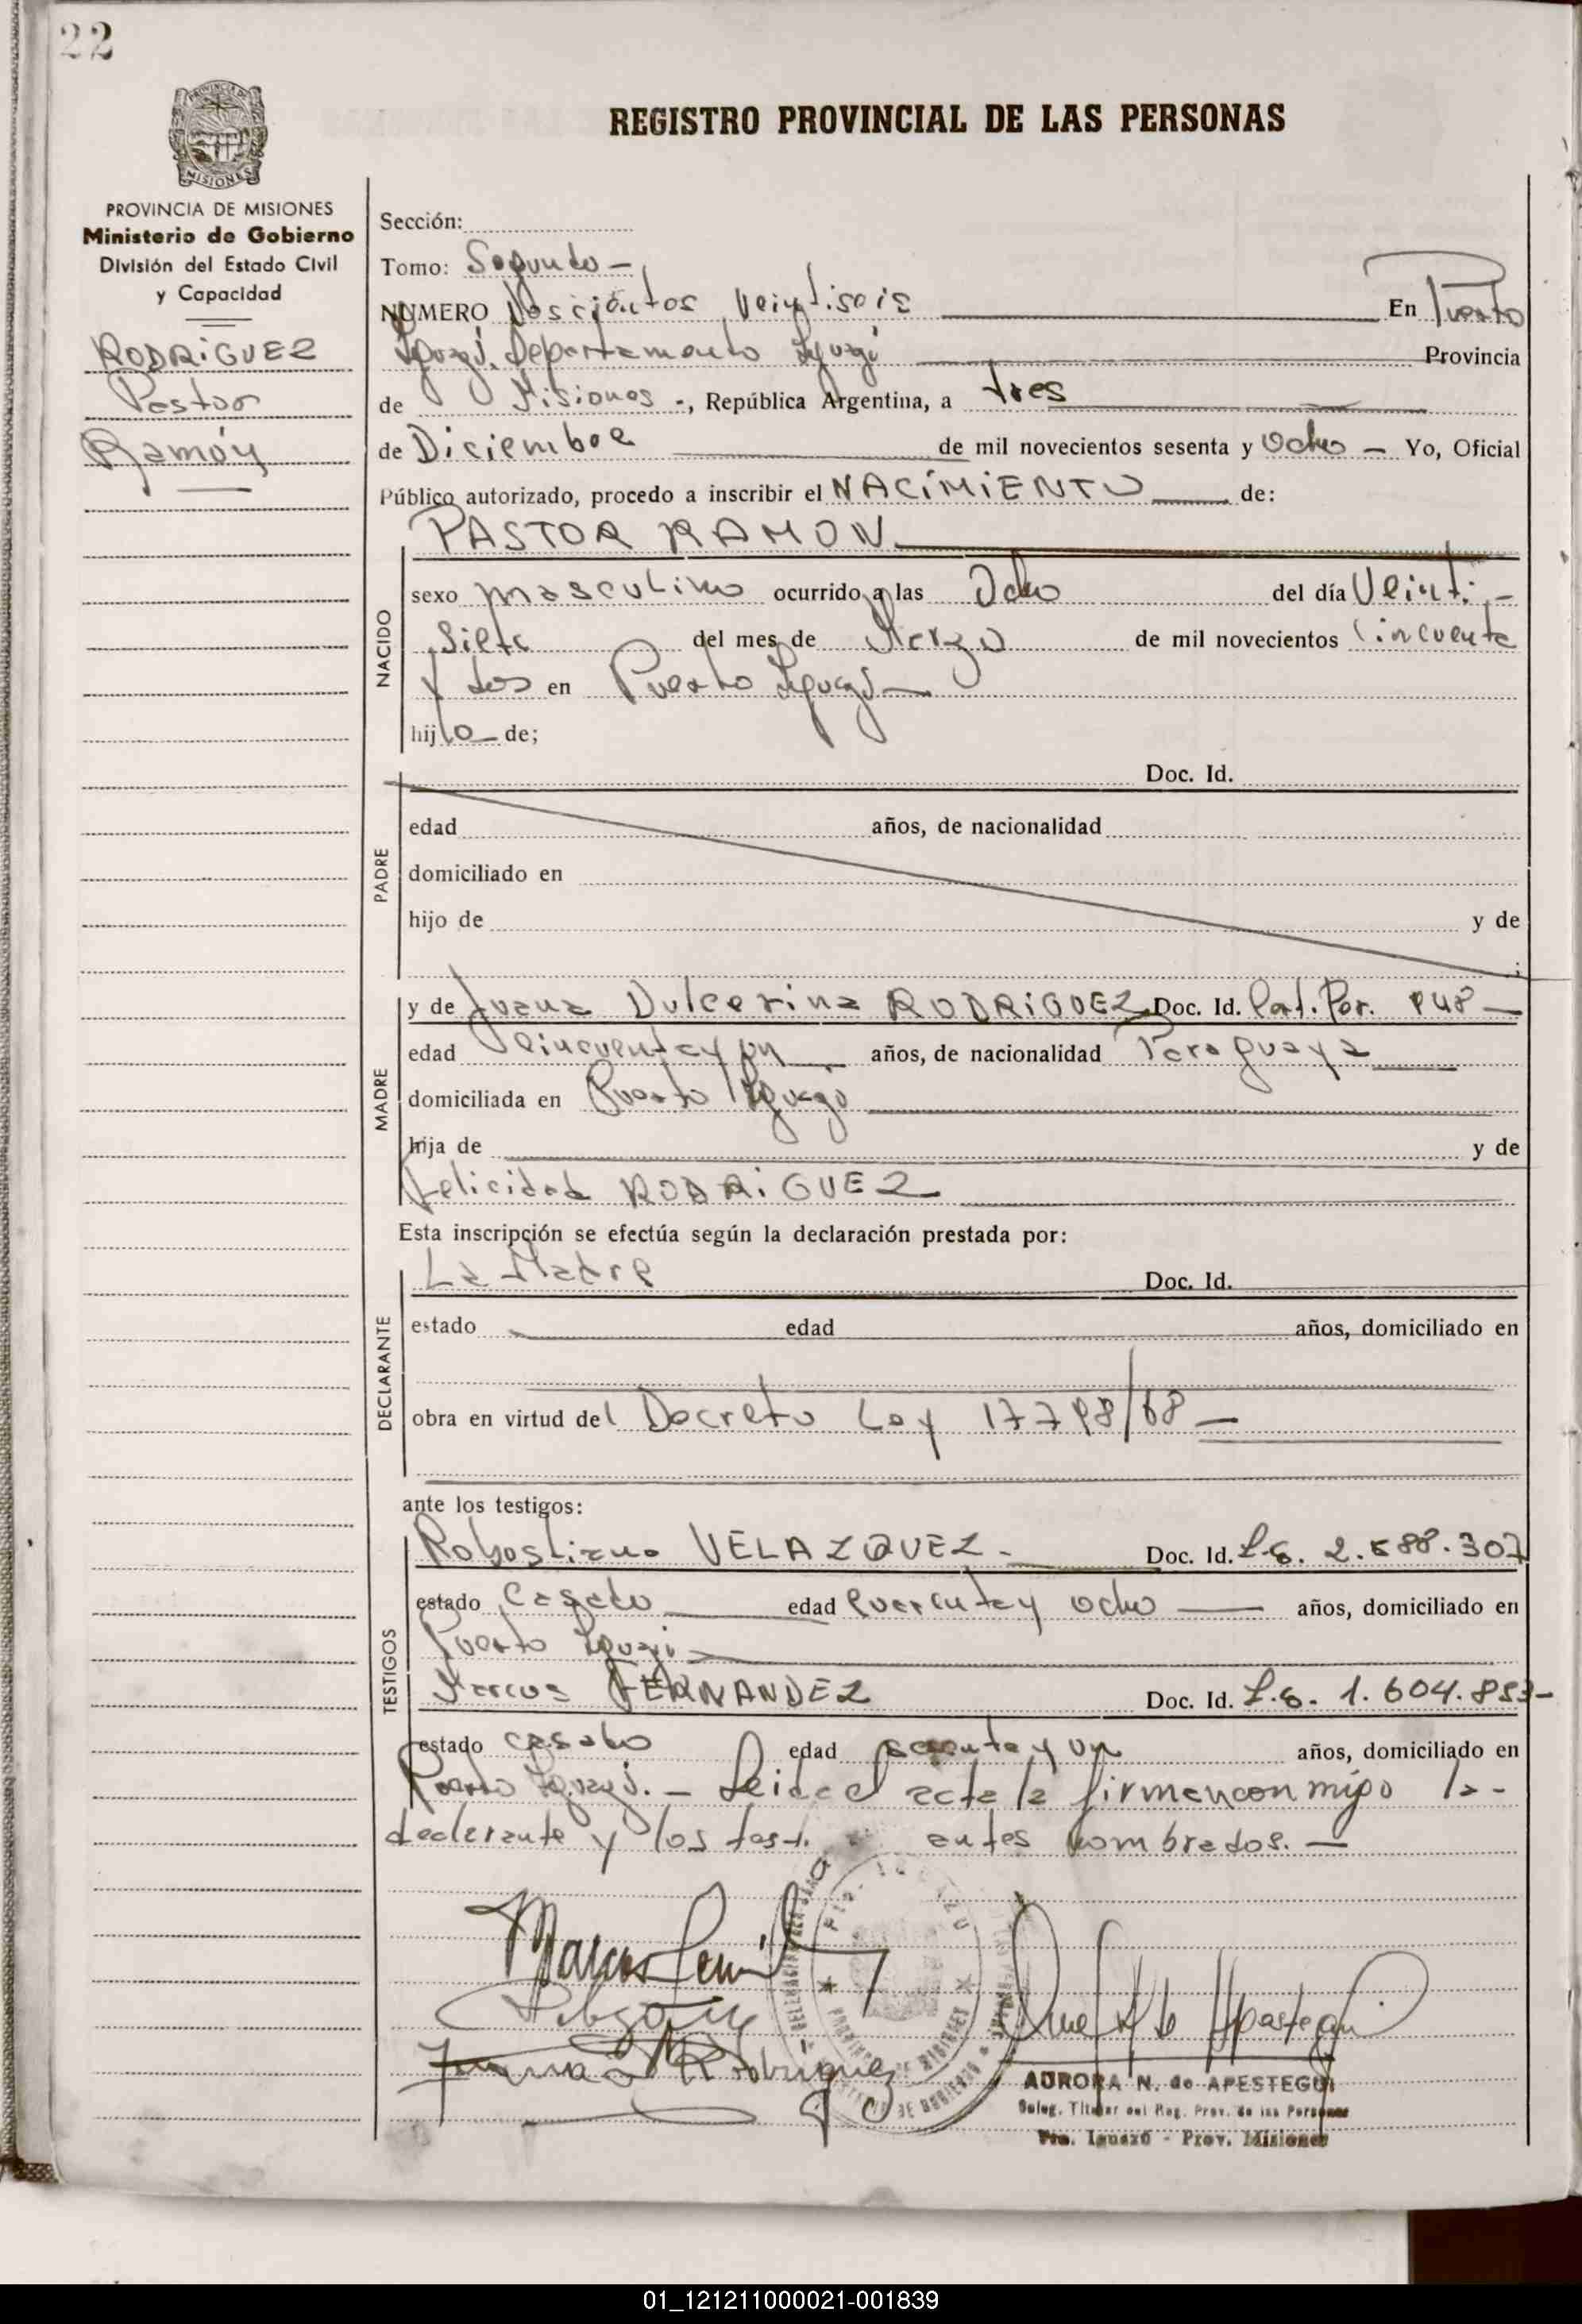 22
REGISTRO PROVINCIAL DE LAS PERSONAS
PROVINCIA DE MISIONES
MISIONES
PROVINCIA DE MISIONES
Ministerio de Gobierno
División del Estado Civil
y Capacidad
RODRIGUEZ
Pastor
Ramón
Sección:
Tomo: Segundo -
NUMERO Doscientos Veintiseis En Puerto
Iguazú, Departamento Iguazú Provincia
de Misiones -, República Argentina, a tres
de Diciembre de mil novecientos sesenta y Ocho - Yo, Oficial
Público autorizado, procedo a inscribir el NACIMIENTO de:
PASTOR RAMON
NACIDO
sexo masculino ocurrido a las Ocho del día Veinti-
siete del mes de Marzo de mil novecientos Cincuenta
y dos en Puerto Iguazú
hijo de;
PADRE
Doc. Id.
edad años, de nacionalidad
domiciliado en
hijo de y de
;
MADRE
y de Juana Dulcerina RODRIGUEZ Doc. Id. Part. Per.
edad Cincuenta y un años, de nacionalidad Paraguaya
domiciliada en Puerto Iguazú
hija de y de
Felicidad RODRIGUEZ
Esta inscripción se efectúa según la declaración prestada por:
DECLARANTE
La Madre Doc. Id.
estado edad años, domiciliado en
obra en virtud del Decreto Ley 17798/68
ante los testigos:
TESTIGOS
Robostiano VELAZQUEZ - Doc. Id. 307
estado Casado edad Cuarenta y ocho años, domiciliado en
Puerto Iguazú
Marcos FERNANDEZ Doc. Id. 1.604.
estado casado edad y un años, domiciliado en
Puerto Iguazú. - Leida el acta la firman conmigo la -
declarante y los test. antes nombrados. -
Juana D Rodriguez
AURORA N. de APESTEGUI
Deleg. Titular del Reg. Prov. de las Personas
Pto. Iguazú - Prov. Misiones
01_121211000021-001839